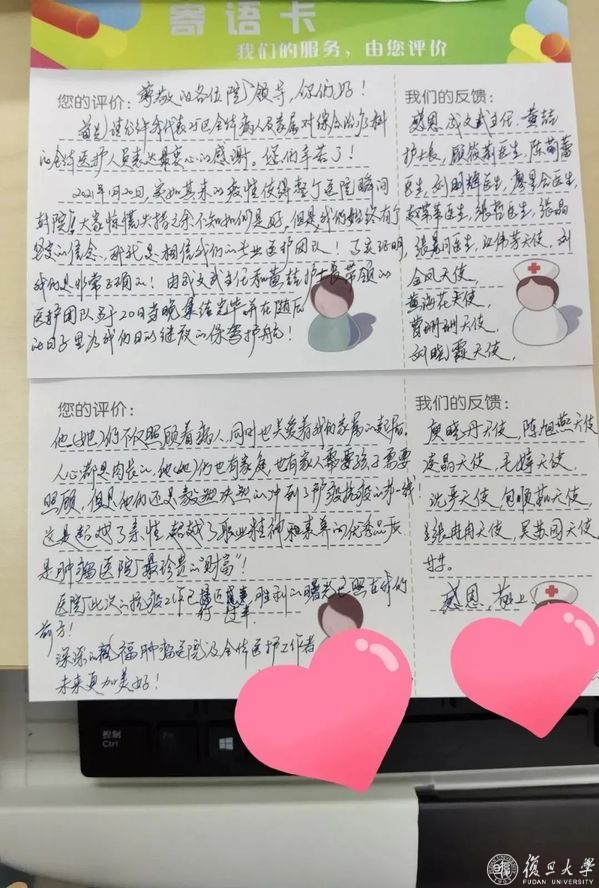 寄语卡
我们的服务，由您评价
您的评价：尊敬的各位院领导，你们好！
首先请允许我代表病区全体病人及家属对综合治疗科
的全体医护人员表达最衷心的感谢，您们辛苦了！
2021年 月20日，突如其来的疫情使得整个医院瞬间
封院！大家惊慌失措之余不知如何是好，但是我们始终有个
坚定的信念，那就是相信我们的专业医护团队！事实证明，
我们是非常正确的！由成文武主任和黄喆护士长带领的
医护团队于20日当晚集结完毕并在随后
的日子里为我们日以继夜的保驾护航！
我们的反馈：
感恩成文武主任、黄喆
护士长、顾筱莉医生、陈萌蕾
医生、刘明辉医生、廖 医生、
赵 医生、张哲医生、张晶
医生、 医生、 天使、刘
金凤天使、
黄海花天使、
曹珊珊天使、
刘晓霞天使、
您的评价：
他（她）们不仅照顾着病人，同时也关爱着我们家属的起居。
人心都是肉长的，他（她）们也有家庭，也有家人需要孩子需要
照顾，但是他们还是毅然决然的冲到了防疫抗疫的第一线！
这是超越了亲情超越了职业精神和素养的优秀品质
是肿瘤医院最珍贵的“财富”！
医院此次的抗疫工作已接近尾声，胜利的曙光已照在我们的
前方！
深深的祝福肿瘤医院及全体医护工作者
未来更加美好！
我们的反馈：
庾晓丹天使、陈旭燕天使
凌晶天使、毛婷天使、
沈 天使、包顺茹天使
张冉冉天使、吴苏园天使
等等。
感恩，敬上
控制
Ctrl
复旦大学
FUDAN UNIVERSITY